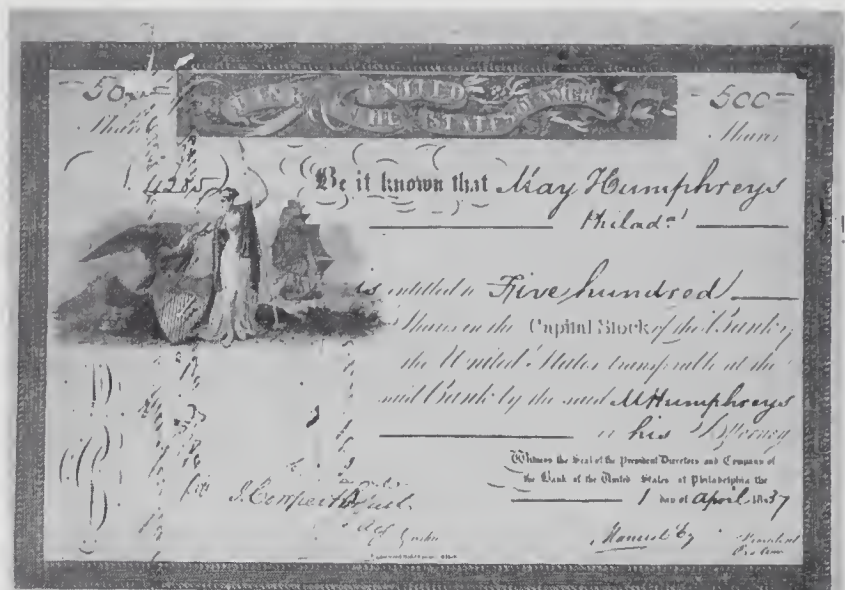 500
500
Shares
Shares
UNITED
THE STATES
4285
Be it known that May Humphreys
Philada
is entitled to Five hundred
Shares in the Capital Stock of the Bank of
the United States transferable at the
said Bank by the said M Humphreys
or his Attorney
Witness the Seal of the President Directors and Company of
the Bank of the United States at Philadelphia the
1 day of April 1837
President